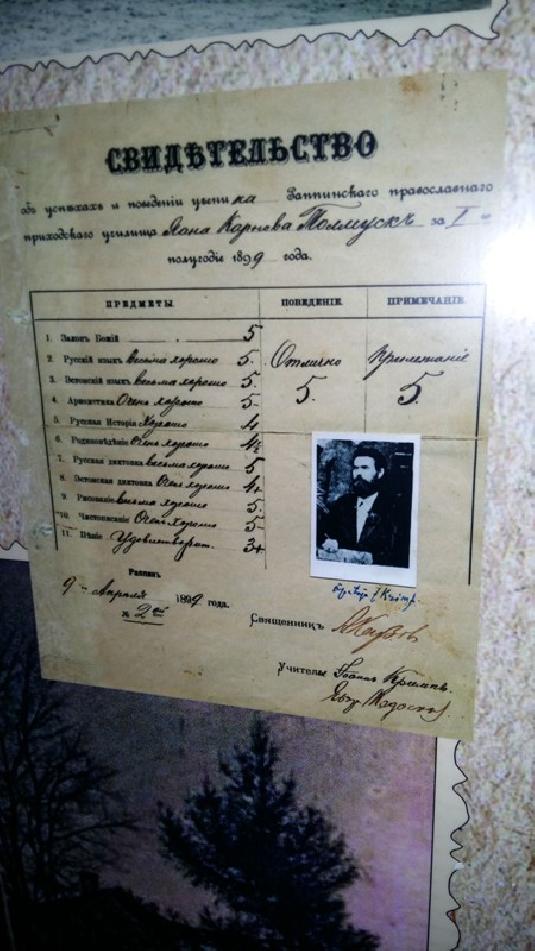 СВИДѢТЕЛЬСТВО
объ успѣхахъ и поведеніи ученика Раппинскаго православнаго
приходскаго училища за I-е
полугодіе 1899 года.
ПРЕДМЕТЫ. ПОВЕДЕНІЕ. ПРИМЕЧАНІЕ.
1. Законъ Божій 5
2. Русскій языкъ весьма хорошо 5. Отлично Прилежаніе
3. Эстонскій языкъ весьма хорошо 5. 5. 5.
4. Ариѳметика Очень хорошо 5-
5. Русская Исторія Хорошо 4
6. Родиновѣдѣніе Очень хорошо 4½
7. Русская диктовка весьма хорошо 5
8. Эстонская диктовка Очень хорошо 4+
9. Рисованіе весьма хорошо 5-
10. Чистописаніе Очень хорошо 5-
11. Пѣніе Удовлетворит. 3+
Раппинъ
9-го Апрѣля 1899 года.
№ 2-ой
Священникъ
Учителя